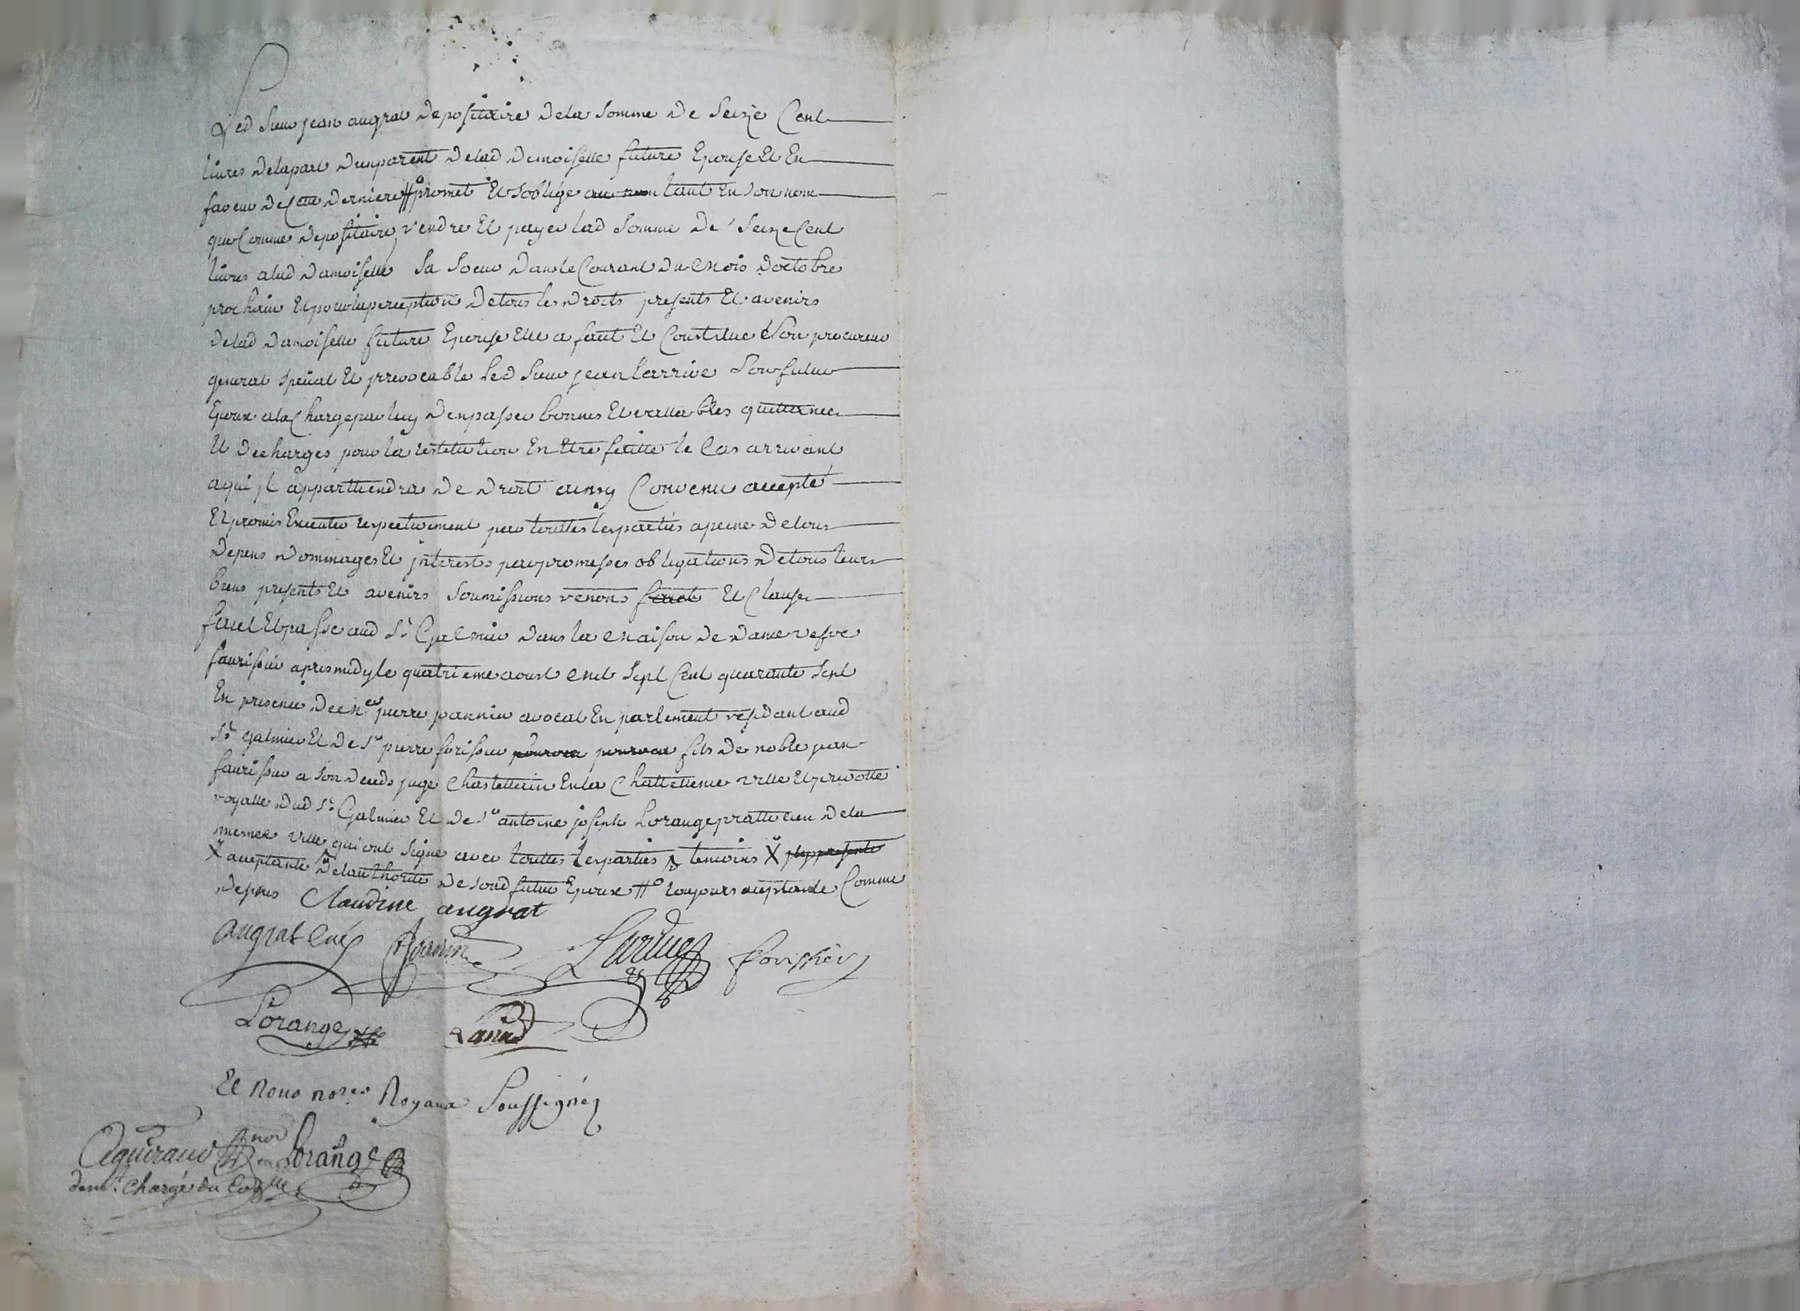 Led Sieur jean augrat depositaire dela Somme de Seize Cent
livres delapart dunparent delad demoiselle future Epouse Et En
faveur de Cette derniere promet Et soblige au nom tant En son nom
que Comme depositaire rendre Et payer lad Somme de Seize Cent
livres alad damoiselle Sa Soeur dans le Courant du mois doctobre
prochain Et pour la perception de tous les droits presents Et avenirs
delad damoiselle future Epouse Elle a fait Et Constitué Son procureur
general special Et jrrevocable led Sieur jean larrive Son futur
Epoux ala Charge par luy denpasser bonnes Et vallables quittances
Et decharges pour la restitution En Etre faitte le Cas arrivant
a qui jl appartiendra de droit ainsy Convenu accepté
Et promis Executer respectivement par touttes les parties a peine de tous
depens dommages Et jnterests par promesses obligations de tous leurs
biens presents Et avenirs Soumissions renons Et Clauses
fait Et passé aud St Galmier dans la maison de dame vefve
faurissier apres midy le quatrieme aoust mil Sept Cent quarante Sept
En presence de pierre jannin avocat En parlement residant aud
St galmier Et de Sr pierre forissier fils de noble jean
faurissier a son deceds juge Chastellain En la Chattellenie ville Et prevotté
royalle dud St Galmier Et de Sr antoine joseph Lorange pratticien dela
mesme ville qui ont Signé avec touttes les parties & temoins X
X acceptante de lauthorité de Sond futur Epoux toujours acceptante Comme
depuis Claudine augrat
augrat Curé Jannin Larrive forissier
Lorange
Et Nous nores Royaux Soussignez
Aguiraud nore Lorange